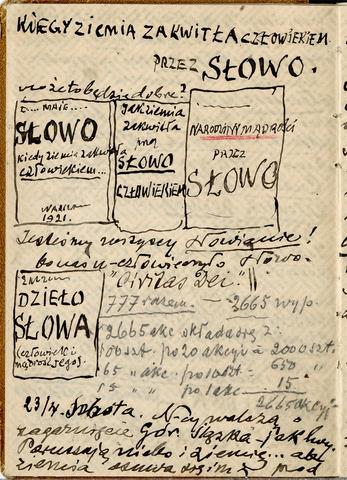 KIEGY ZIEMIA ZAKWITŁA CZŁOWIEKIEM
PRZEZ SŁOWO.
może to będzie dobre?
MAIE
SŁOWO
kiedy ziemia zakwitła
człowiekiem...
1921.
JAK ZIEMIA
zakwitła
SŁOWO
CZŁOWIEKIEM
NARODZINY MĄDROŚCI
PRZEZ
SŁOWO
Jesteśmy wszyscy Słowianie!
bo nas uczłowieczyło Słowo-
"Civitas Dei"
DZIEŁO
SŁOWA
(człowieka i
mądrość jego).
777 razem — 2665 wyp.
2665 akc składa się z:
100 szt. po 20 akcyi = 2000 szt.
65 " akc. po 10 szt = 650 "
15 " " po 1 akc — 15.
2665 akcyj
23/IV. Sobota. Niej walczą o
zagarnięcie Gór. Śląska - jak lwy.
Poruszają niebo i ziemię... aby
ziemia pod